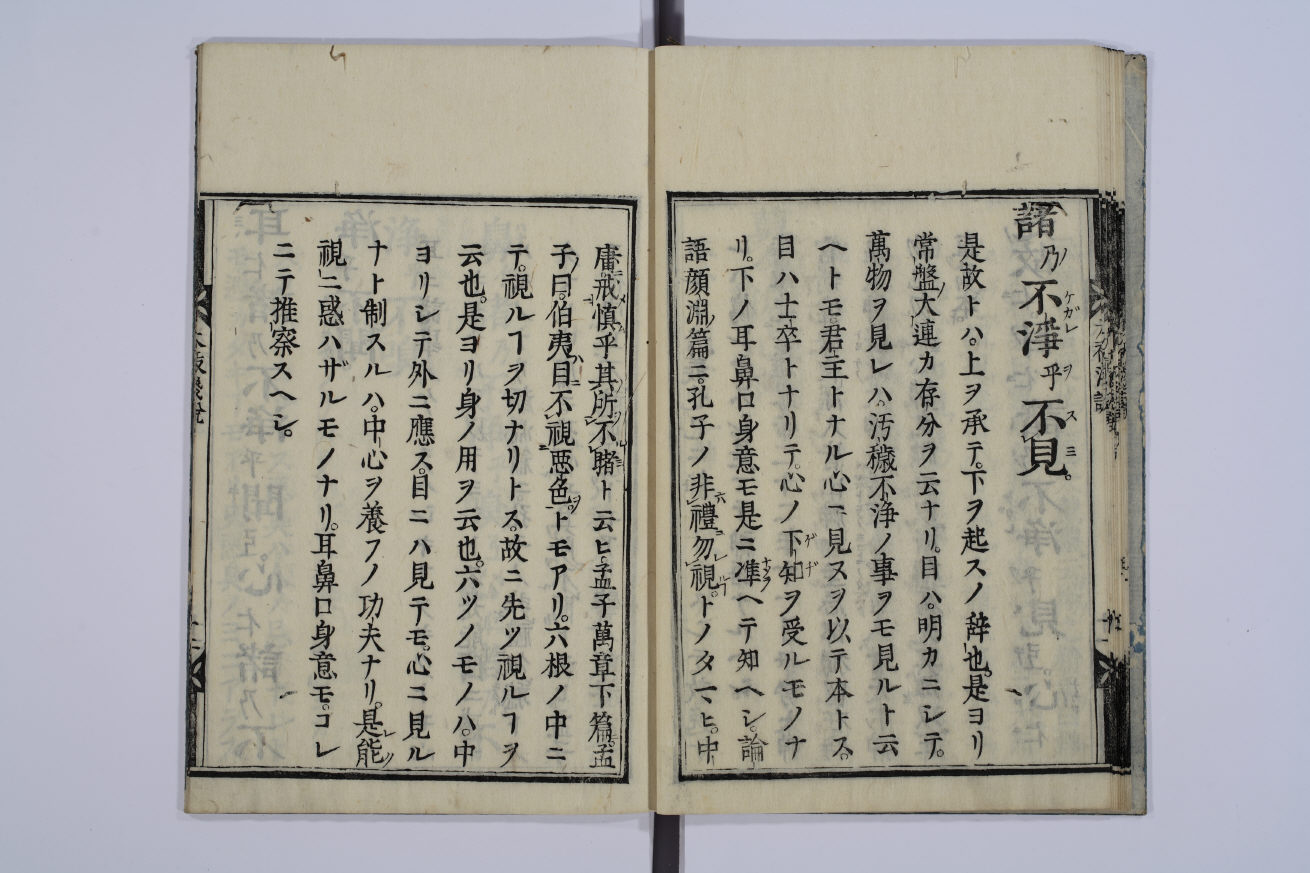 諸乃不淨乎不見。
是故トハ。上ヲ承テ。下ヲ起スノ辭也。是ヨリ
常盤大連カ存分ヲ云ナリ。目ハ。明カニシテ。
萬物ヲ見レハ。汚穢不浄ノ事ヲモ見ルト云
ヘトモ。君主トナル心ニ見スヲ以テ本トス。
目ハ士卒トナリテ。心ノ下知ヲ受ルモノナ
リ。下ノ耳鼻口身意モ是ニ凖ヘテ知ヘシ。論
語顔淵篇ニ。孔子ノ非禮勿視。トノタマヒ。中
庸ニ戒慎乎其所不睹ト云ヒ。孟子萬章下篇。孟
子曰。伯夷目不視悪色。トモアリ。六根ノ中ニ
テ。視ルヿヲ切ナリトス。故ニ先ツ視ルヿヲ
云也。是ヨリ身ノ用ヲ云也。六ツノモノハ。中
ヨリシテ外ニ應ス。目ニハ見テモ。心ニ見ル
ナト制スルハ。中心ヲ養フノ功夫ナリ。是能
視ニ惑ハザルモノナリ。耳鼻口身意モ。コレ
ニテ推察スヘシ。